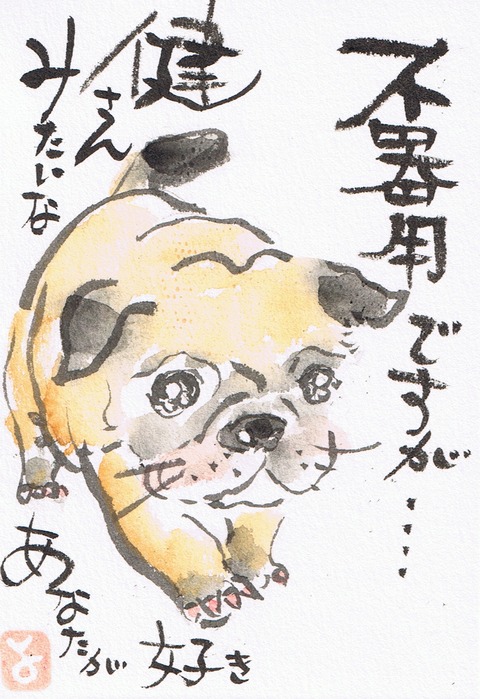 不器用ですが・・・・
健さん
みたいな
あなたが好き